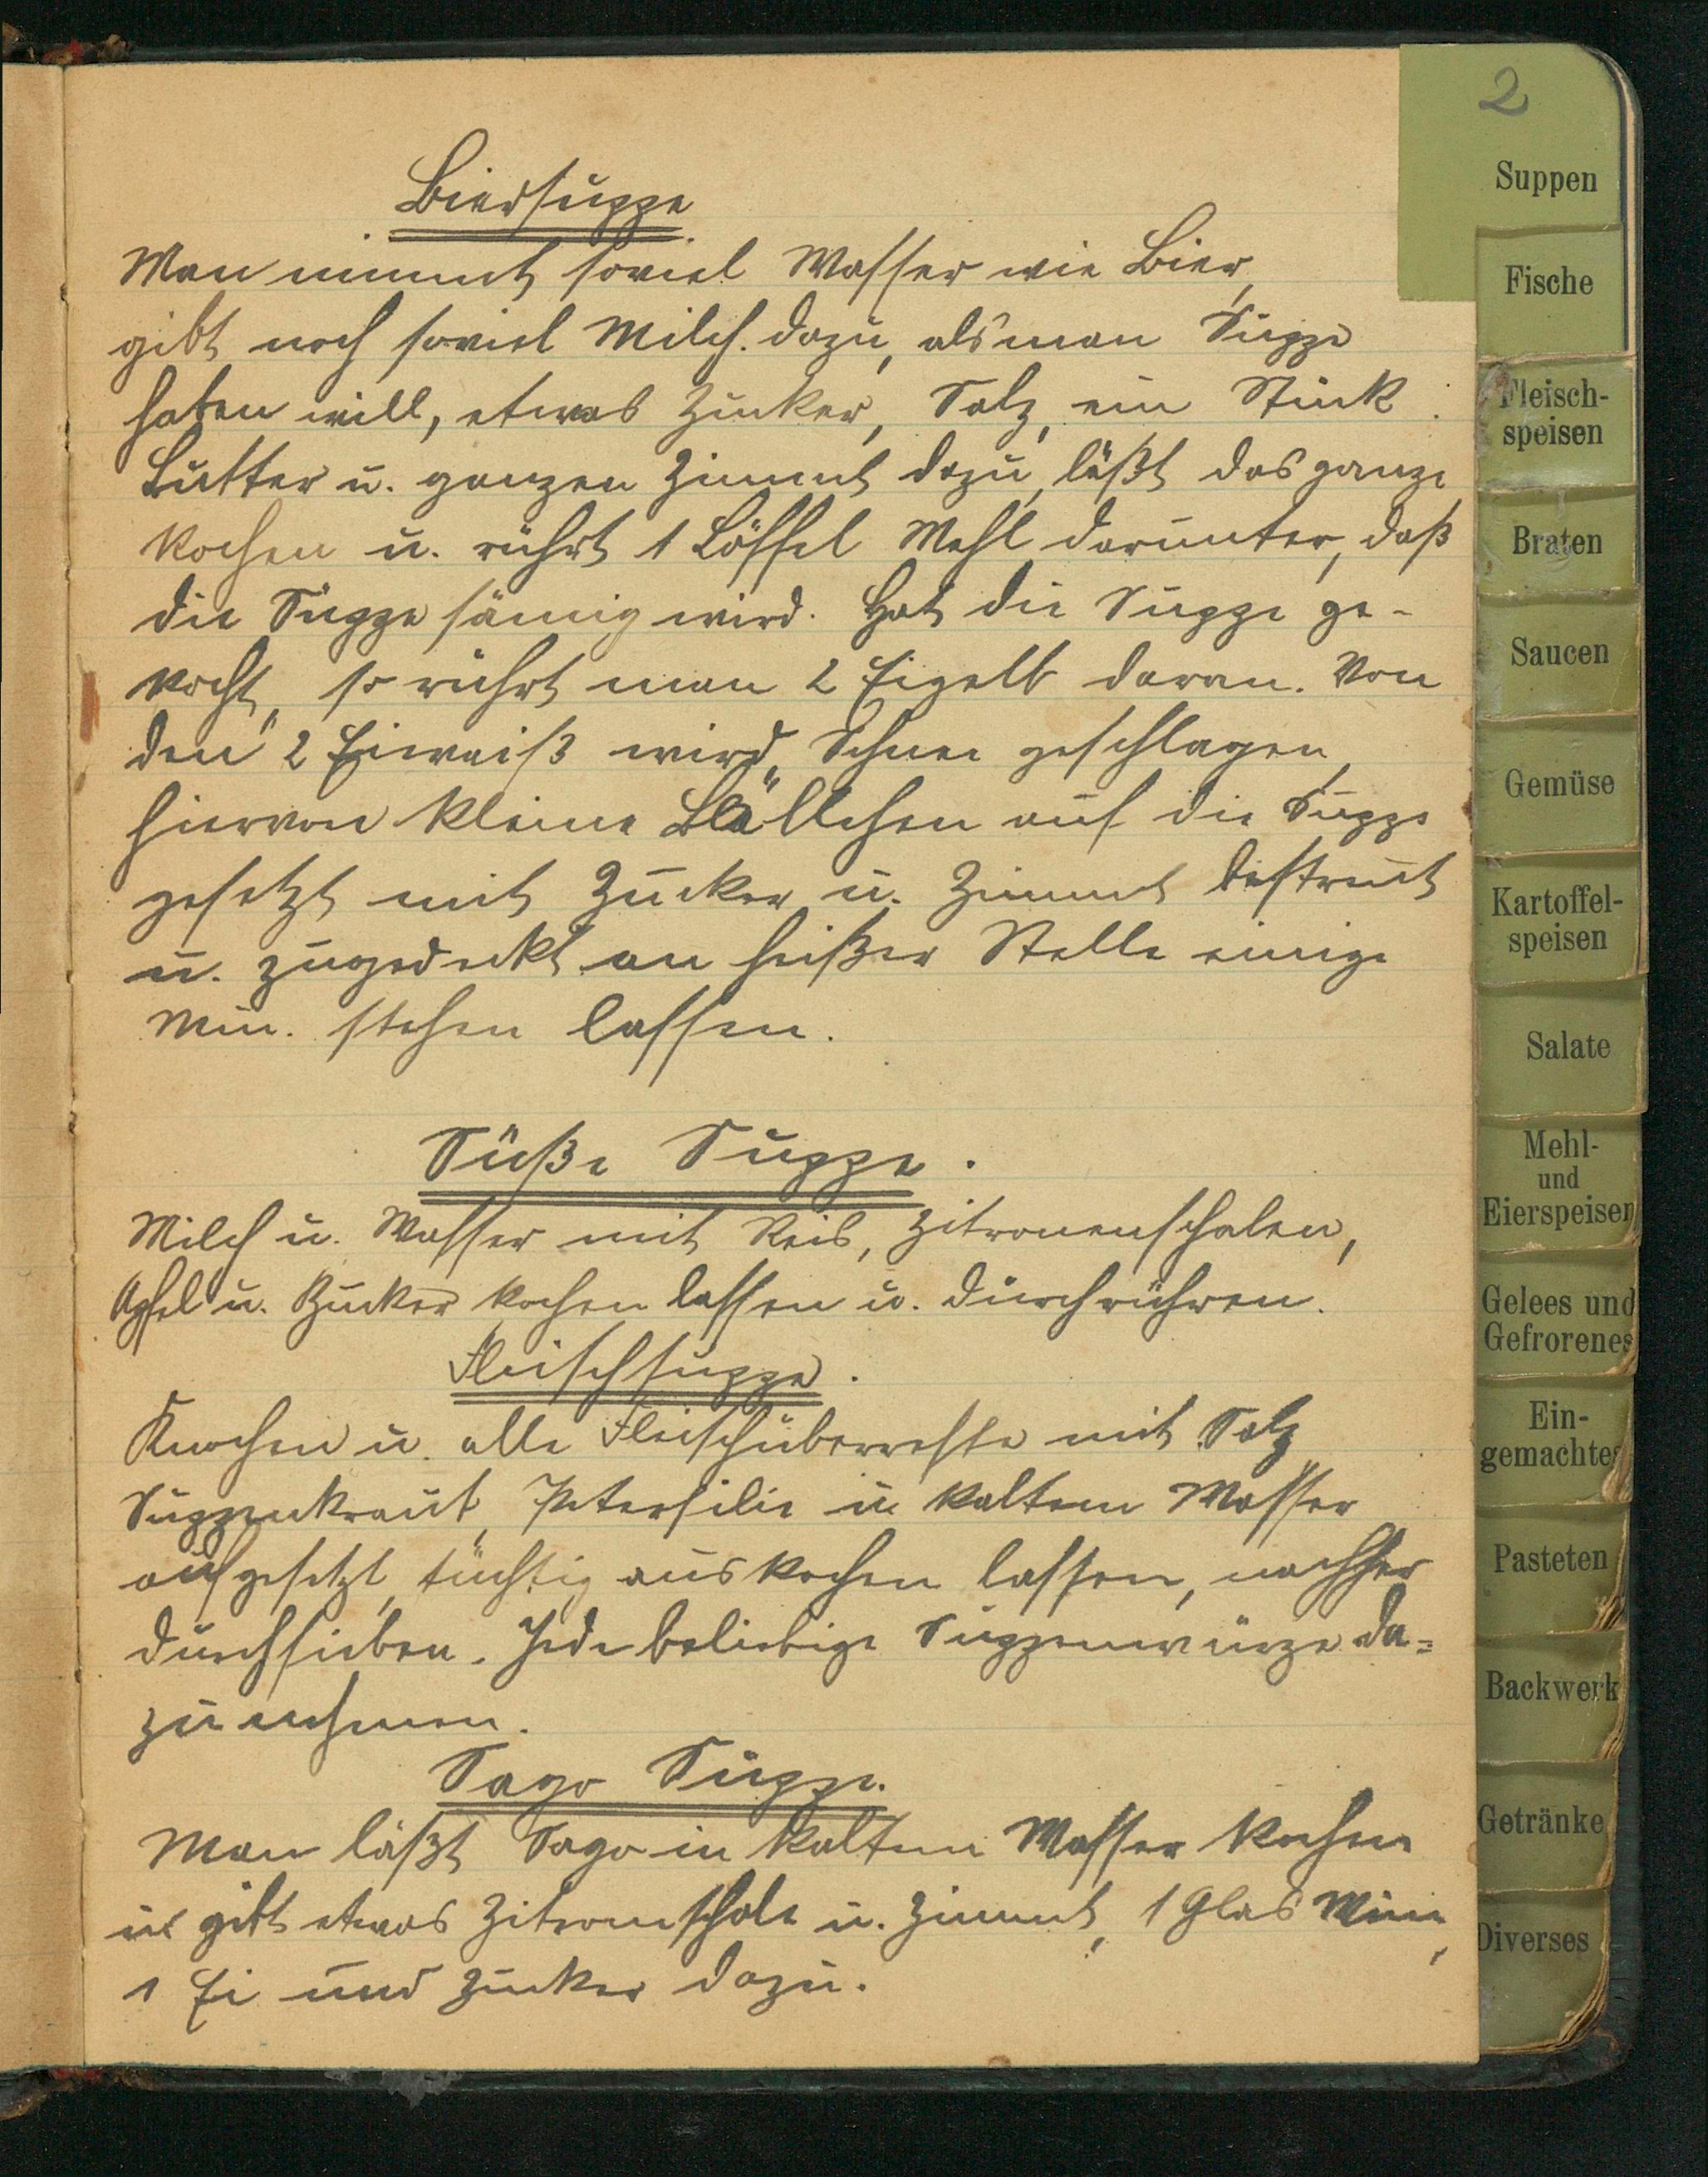 2
Biersuppe
Man nimmt soviel Wasser wie Bier,
gibt noch soviel Milch dazu, als man Suppe
haben will, etwas Zucker, Salz, ein Stück
Butter u. ganzen Zimmt dazu, läßt das ganze
kochen u. rührt 1 Löffel Mehl darunter, daß
die Suppe sämig wird. Hat die Suppe ge-
kocht, so rührt man 2 Eigelb daran. Von
den 2 Eiweiß wird Schnee geschlagen,
hiervon kleine Bällchen auf die Suppe
gesetzt mit Zucker u. Zimmt bestreut
u. zugedeckt an heißer Stelle einige
Min. stehen lassen.
Süße Suppe.
Milch u. Wasser mit Reis, Zitronenschalen,
Apfel u. Zucker kochen lassen u. durchrühren.
Fleischsuppe.
Knochen u. alle Fleischüberreste mit Salz
Suppenkraut, Petersilie u. kaltem Wasser
aufgesetzt, tüchtig auskochen lassen, nachher
durchsieben. Jede beliebige Suppenwürze da=
zu nehmen.
Sago Suppe.
Man läßt Sago in kaltem Wasser kochen
u. gibt etwas Zitronschale u. Zimmt, 1 Glas Wein,
1 Ei und Zucker dazu.
Suppen
Fische
Fleisch-
speisen
Braten
Saucen
Gemüse
Kartoffel-
speisen
Salate
Mehl-
und
Eierspeisen
Gelees und
Gefrorenes
Ein-
gemachtes
Pasteten
Backwerk
Getränke
Diverses